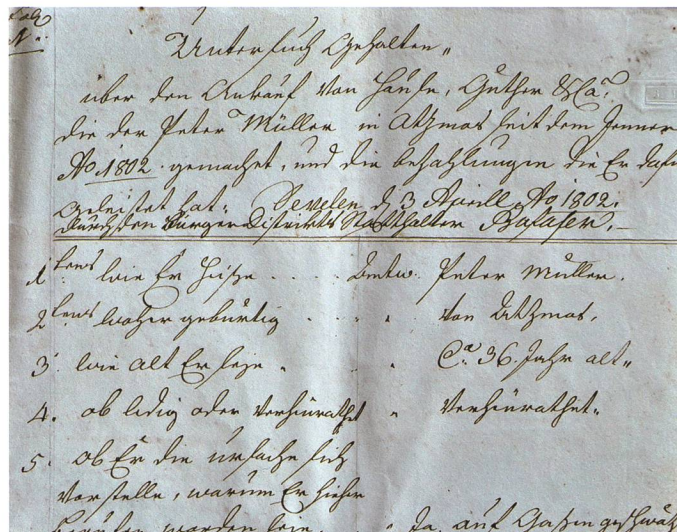 Untersuch Gehalten„
über den Ankauf von Häuser, Güther &Ca.
die der Peter Müller in Atzmos seit dem Jenner
Ao. 1802. gemachet, und die bezahlungen die Er dafür
geleistet hat. Sevelen d. 3 Aprill Ao. 1802.
durch den Bürger Distrikts Statthalter
1tens wie Er heiße .... Antw. Peter Müller.
2tens woher gebürtig .... " von Atzmos.
3. wie alt Er seye. " Ca. 36 Jahr alt„
4. ob ledig oder verheurathet " Verheurathet.
5. ob Er die ursache sich
vorstelle, warum Er hieher
beruffen worden seye. " Ja, auf